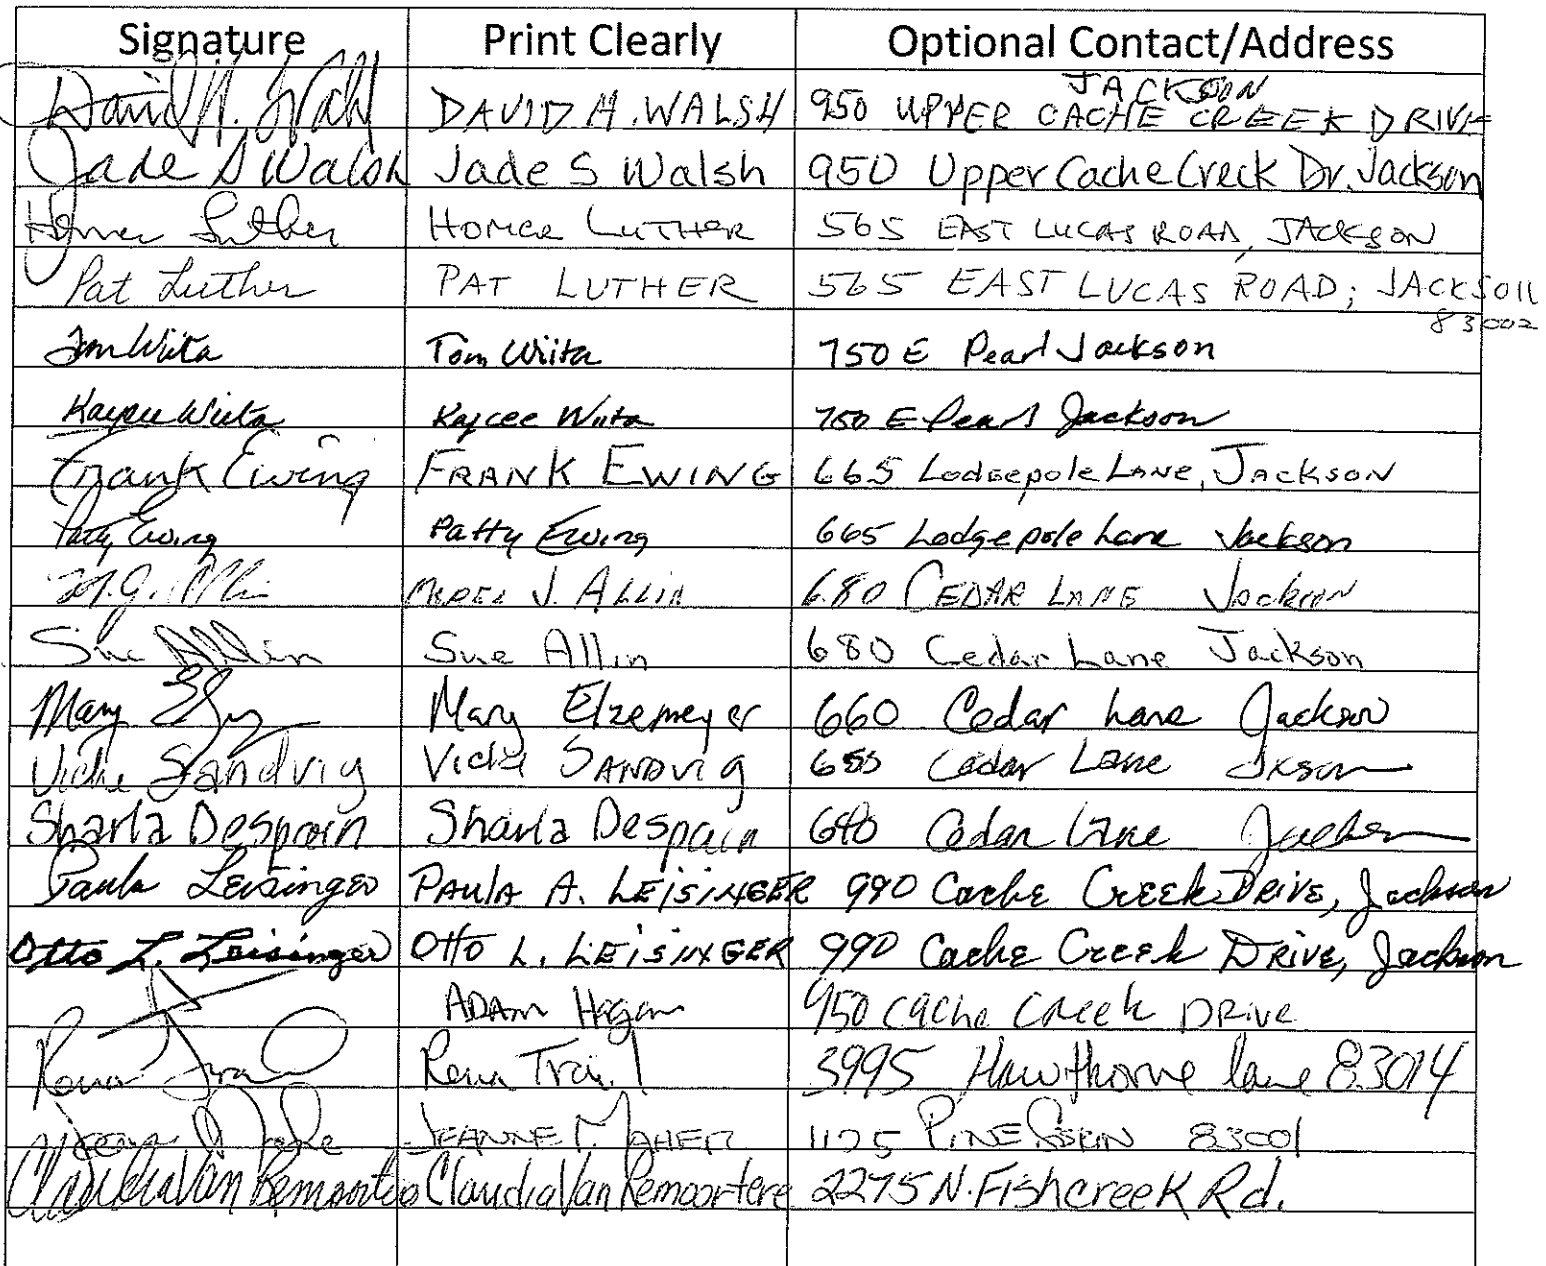 Signature Print Clearly Optional Contact/Address
JACKSON
David H. Walsh DAVID H. WALSH 950 UPPER CACHE CREEK DRIVE
Jade S Walsh Jade S Walsh 950 Upper Cache Creek Dr. Jackson
Homer Luther HOMER LUTHER 565 EAST LUCAS ROAD, JACKSON
Pat Luther PAT LUTHER 565 EAST LUCAS ROAD; JACKSON
83002
Tom Wiita Tom Wiita 750 E Pearl Jackson
Kaycee Wiita Kaycee Wiita 750 E Pearl Jackson
Frank Ewing FRANK EWING 665 Lodgepole Lane, JACKSON
Patty Ewing Patty Ewing 665 Lodgepole Lane Jackson
J. ALLIN 680 CEDAR LANE Jackson
Sue Allin Sue Allin 680 Cedar Lane Jackson
Mary Mary Elzemeyer 660 Cedar Lane Jackson
Vicki Sandvig Vicki SANDVIG 655 Cedar Lane Jkson
Sharla Despain Sharla Despain Cedar Lane Jackson
Paula Leisinger PAULA A. LEISINGER 990 Cache Creek DRIVE, Jackson
Otto L. Leisinger Otto L. LEISINGER 990 Cache Creek DRIVE, Jackson
ADAM Hagan 950 Cache Creek DRIVE
Rena Trail Rena Trail 3995 Hawthorne lane 83014
JEANNE MAHER 1125 PINE 83001
Claudia Van Remoortere Claudia Van Remoortere 2275 N. Fishcreek Rd.